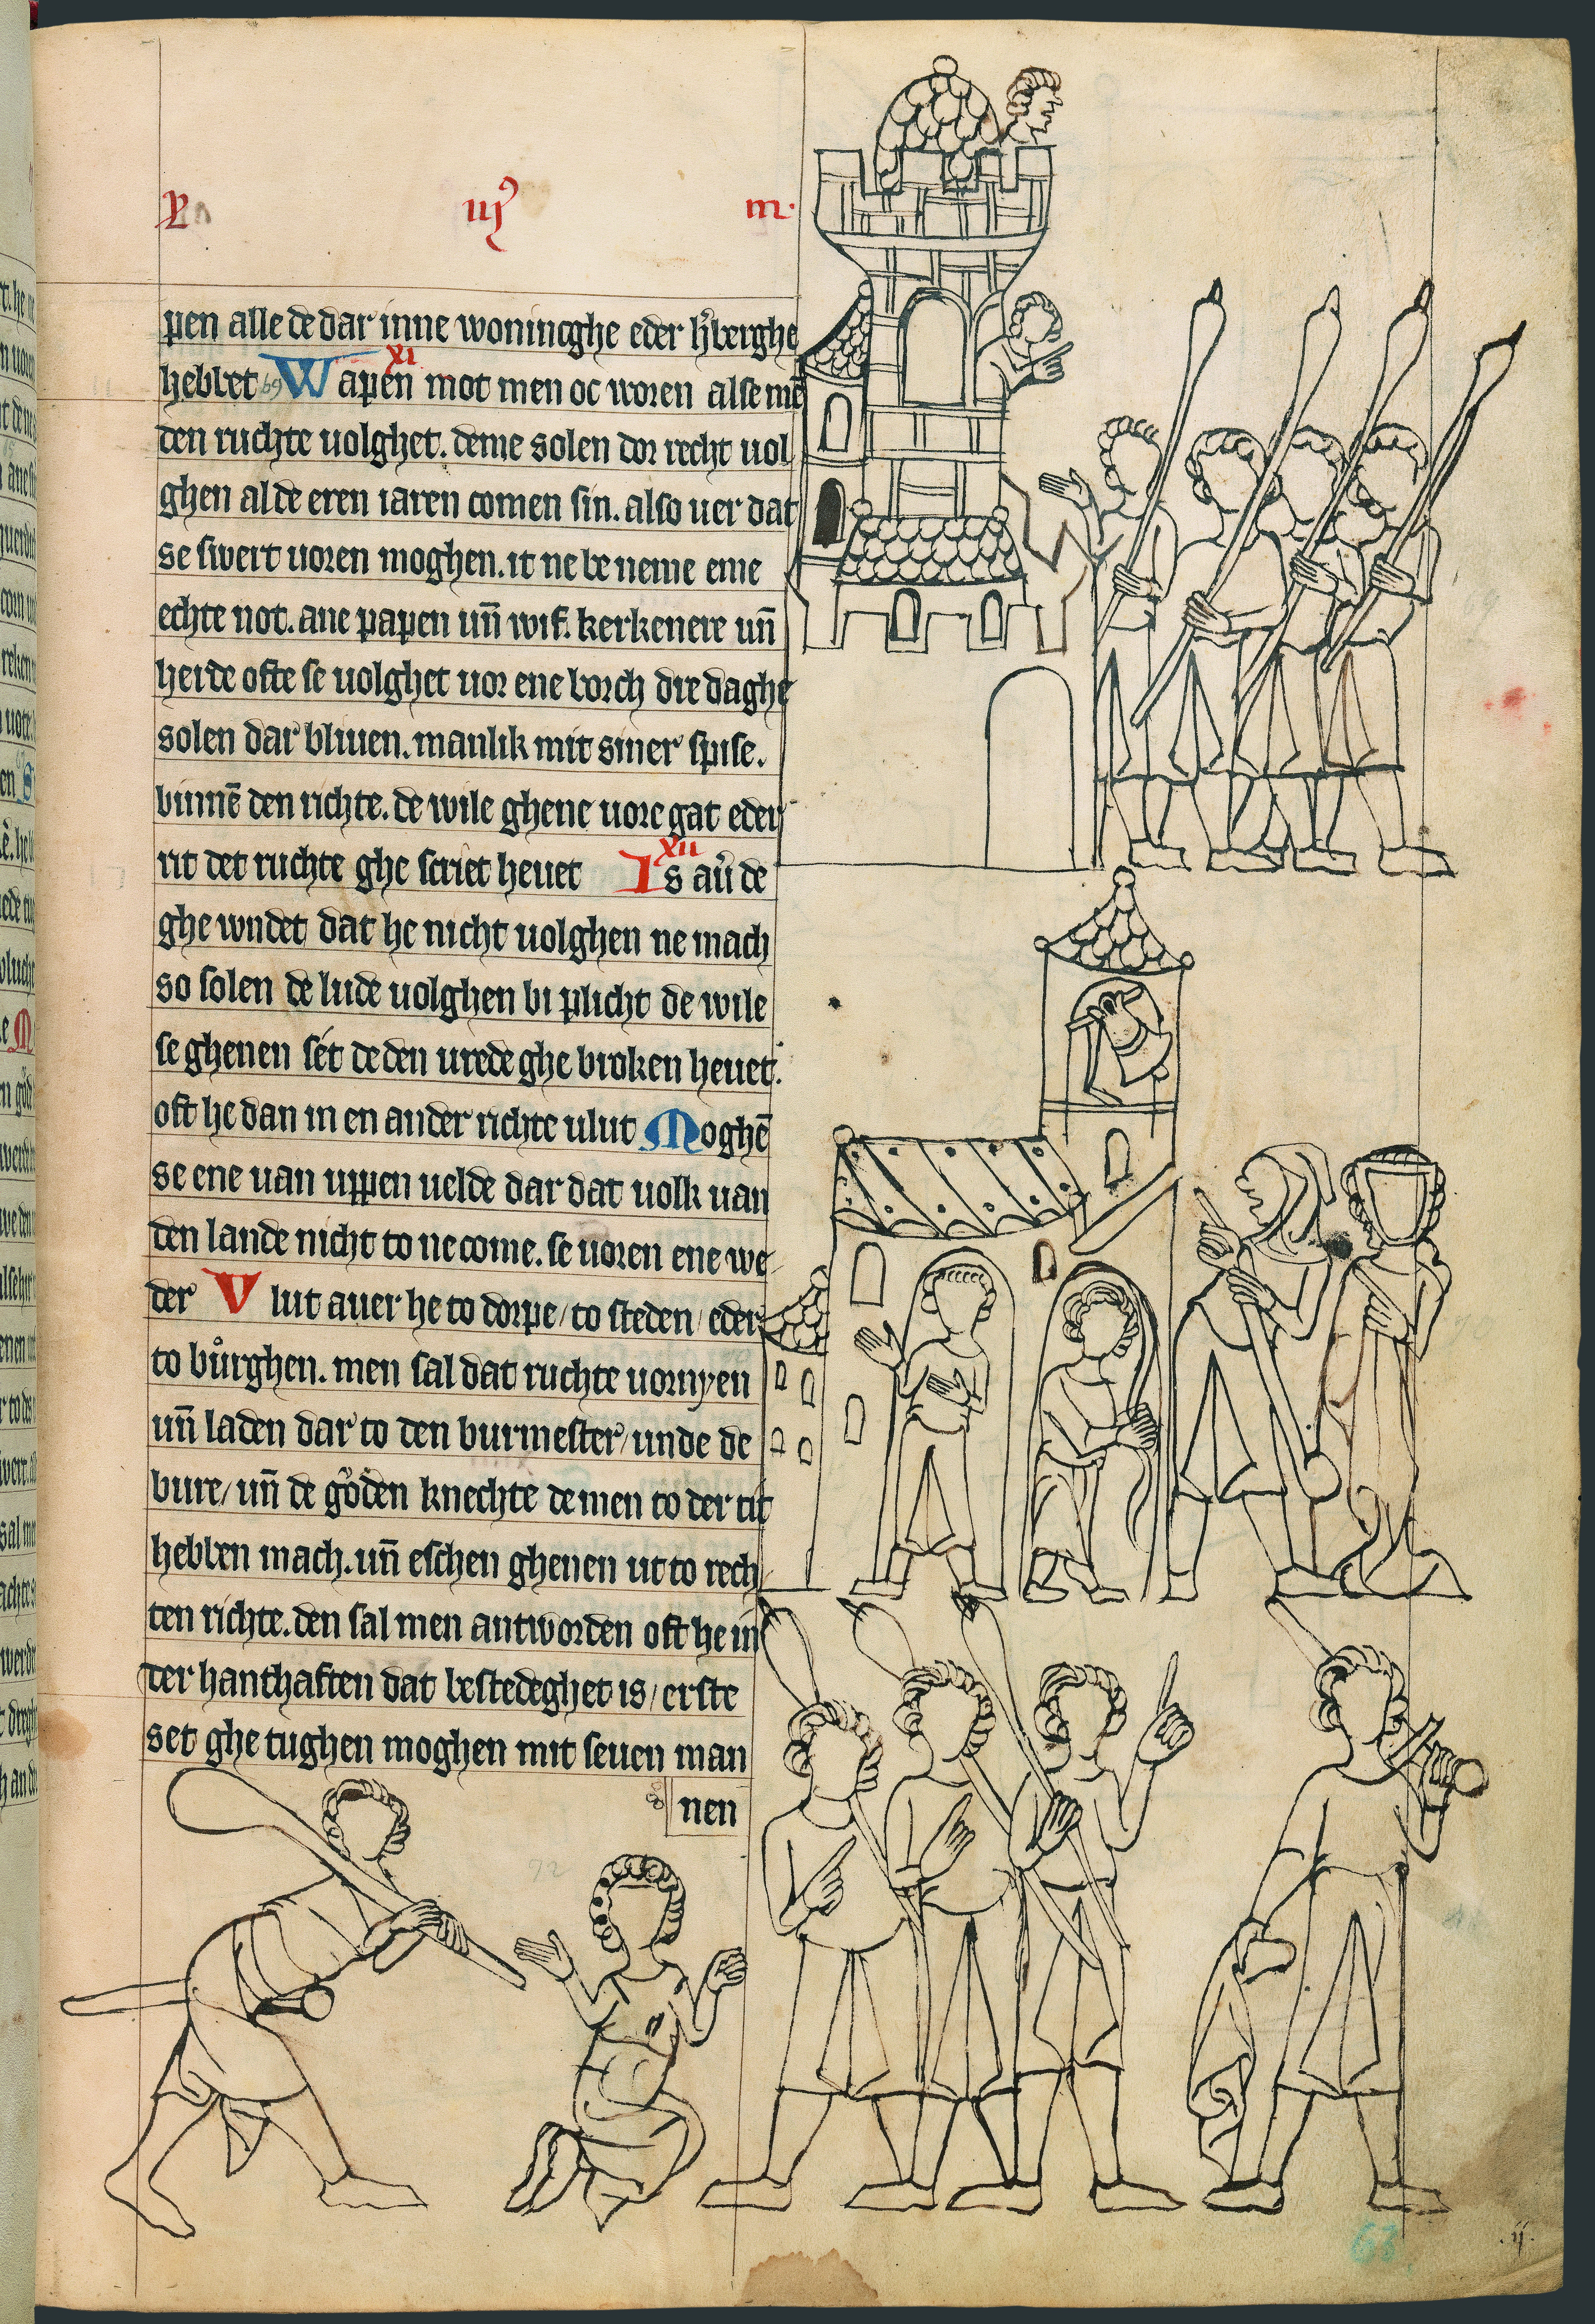 pen alle de dar inne wonincghe eder hˀberghe
hebbet Wapen mot men oc voren alse mē
xi
den ruchte uolghet. deme solen dor recht uol
ghen al de eren iaren comen sin. also uer dat
se swert uoren moghen. it ne be neme eme
echte not. ane papen un̄ wif. kerkenere un̄
herde ofte se uolghet uor ene borch dre daghe
solen dar bliuen. manlik mit siner spise.
binnē den richte. de wile ghene uore gat eder
rit det ruchte ghe scriet heuet Is auˀ de
xii
ghe wndet dat he nicht uolghen ne mach
so solen de lude uolghen bi plicht de wile
se ghenen sét de den urede ghe broken heuet.
oft he dan in en ander richte ulut Moghē
se ene uan uppen uelde dar dat uolk uan
den lande nicht to ne come. se uoren ene we
der Vlut auer he to dorpe / to steden / eder
to bůrghen. men sal dat ruchte uornyen
un̄ laden dar to den burmester / unde de
bure / un̄ de gǒden knechte de men to der tit
hebben mach. un̄ eschen ghenen ut to rech
ten richte. den sal men antworden oft he in
der hanthaften dat bestedeghet is / erste
set ghe tughen moghen mit seuen man
nen
92
63